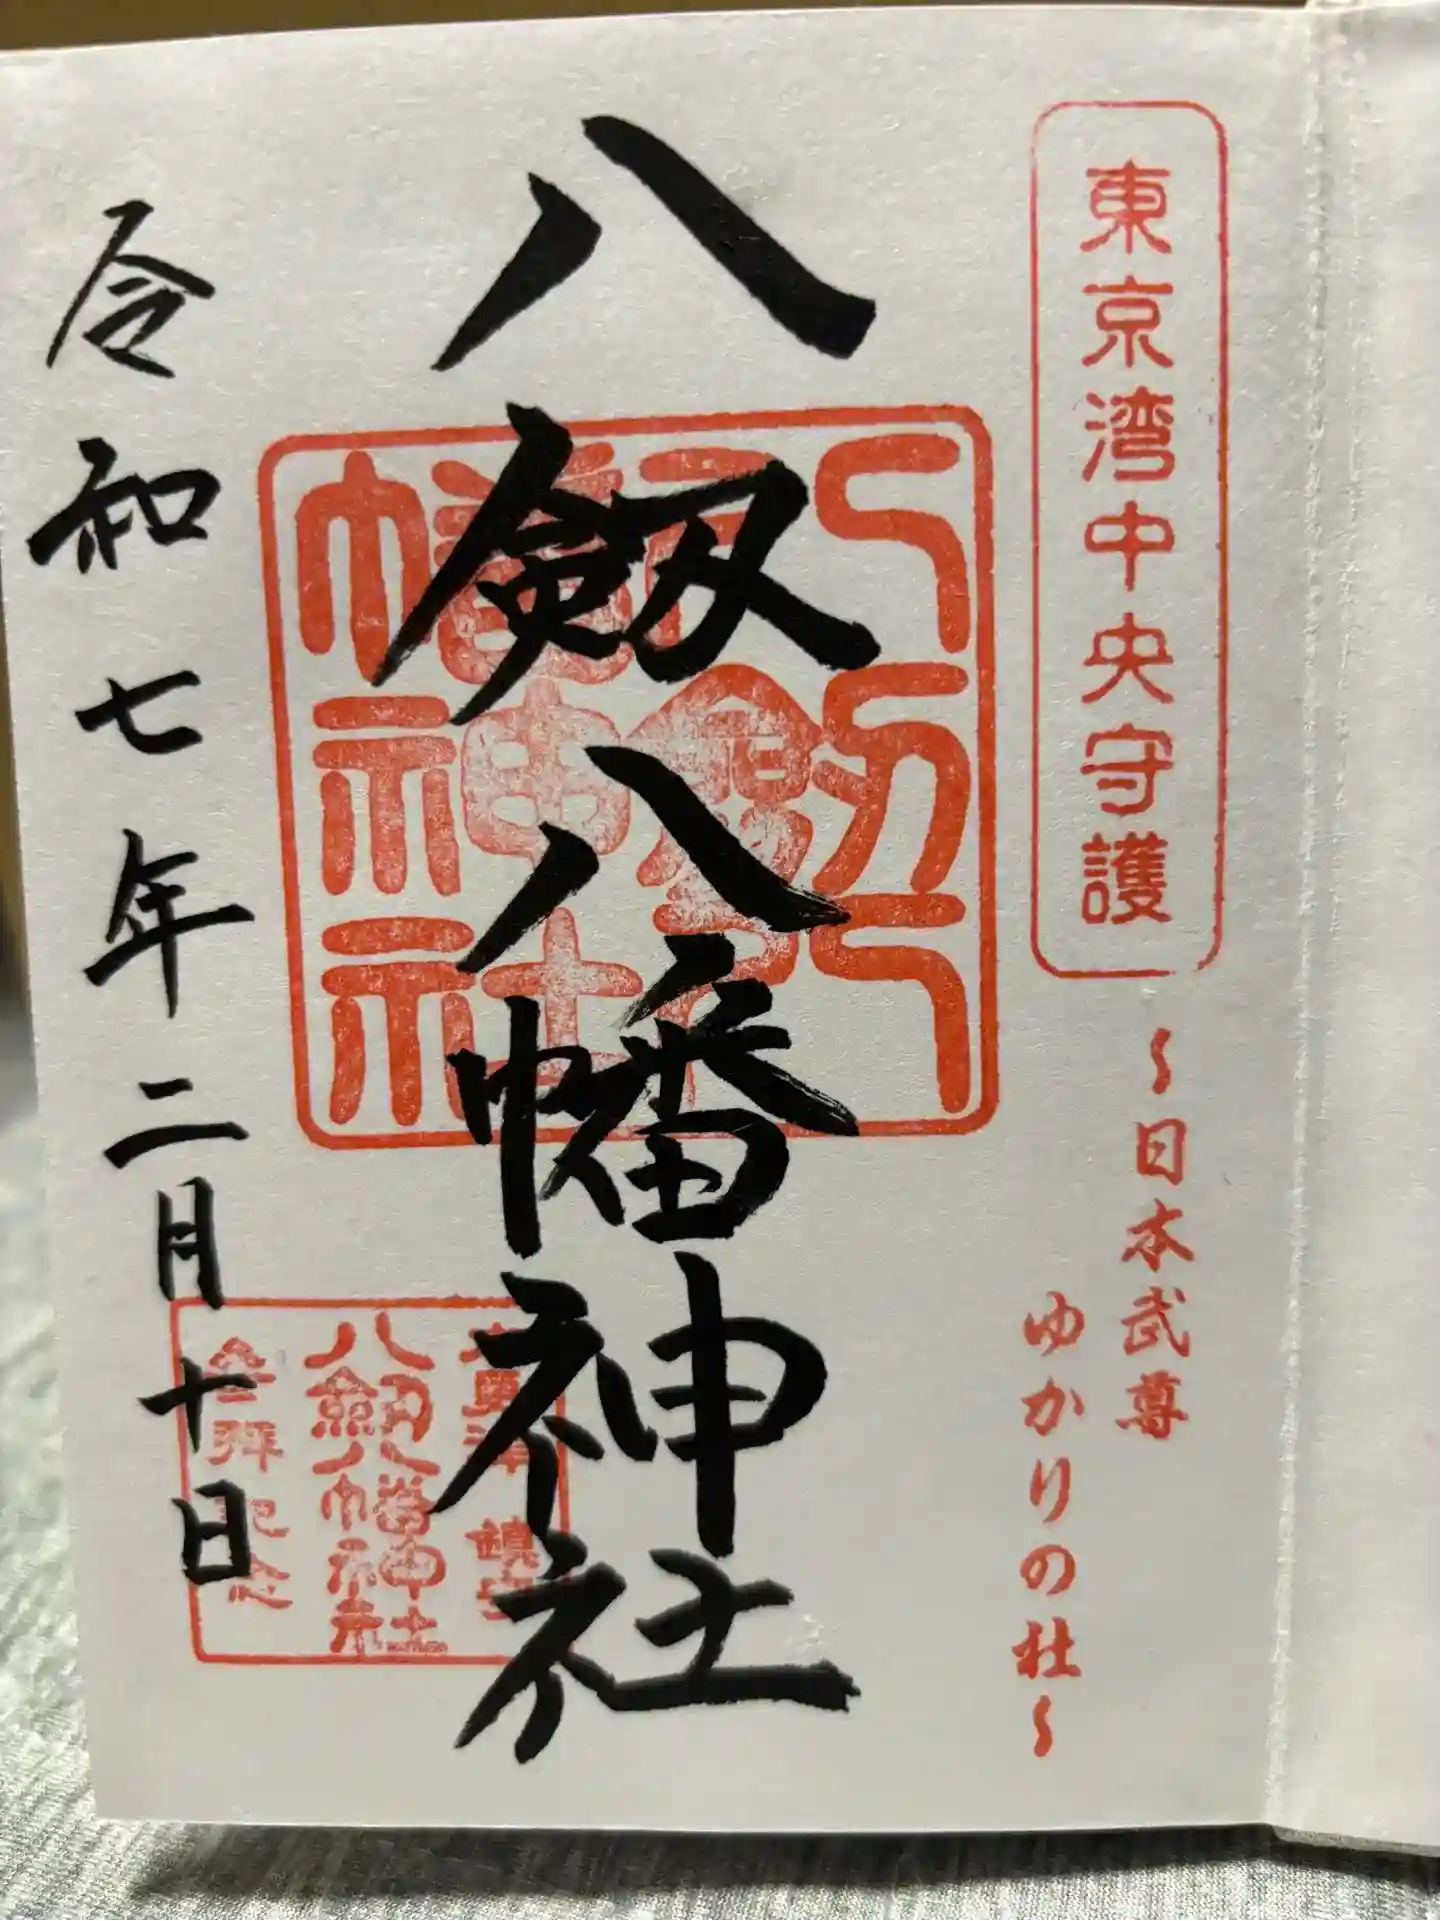 東京湾中央守護
～日本武尊
ゆかりの杜～
八剱八幡神社
八剱八幡神社
木更津 鎮守
八剱八幡神社
参拝記念
令和七年二月十日